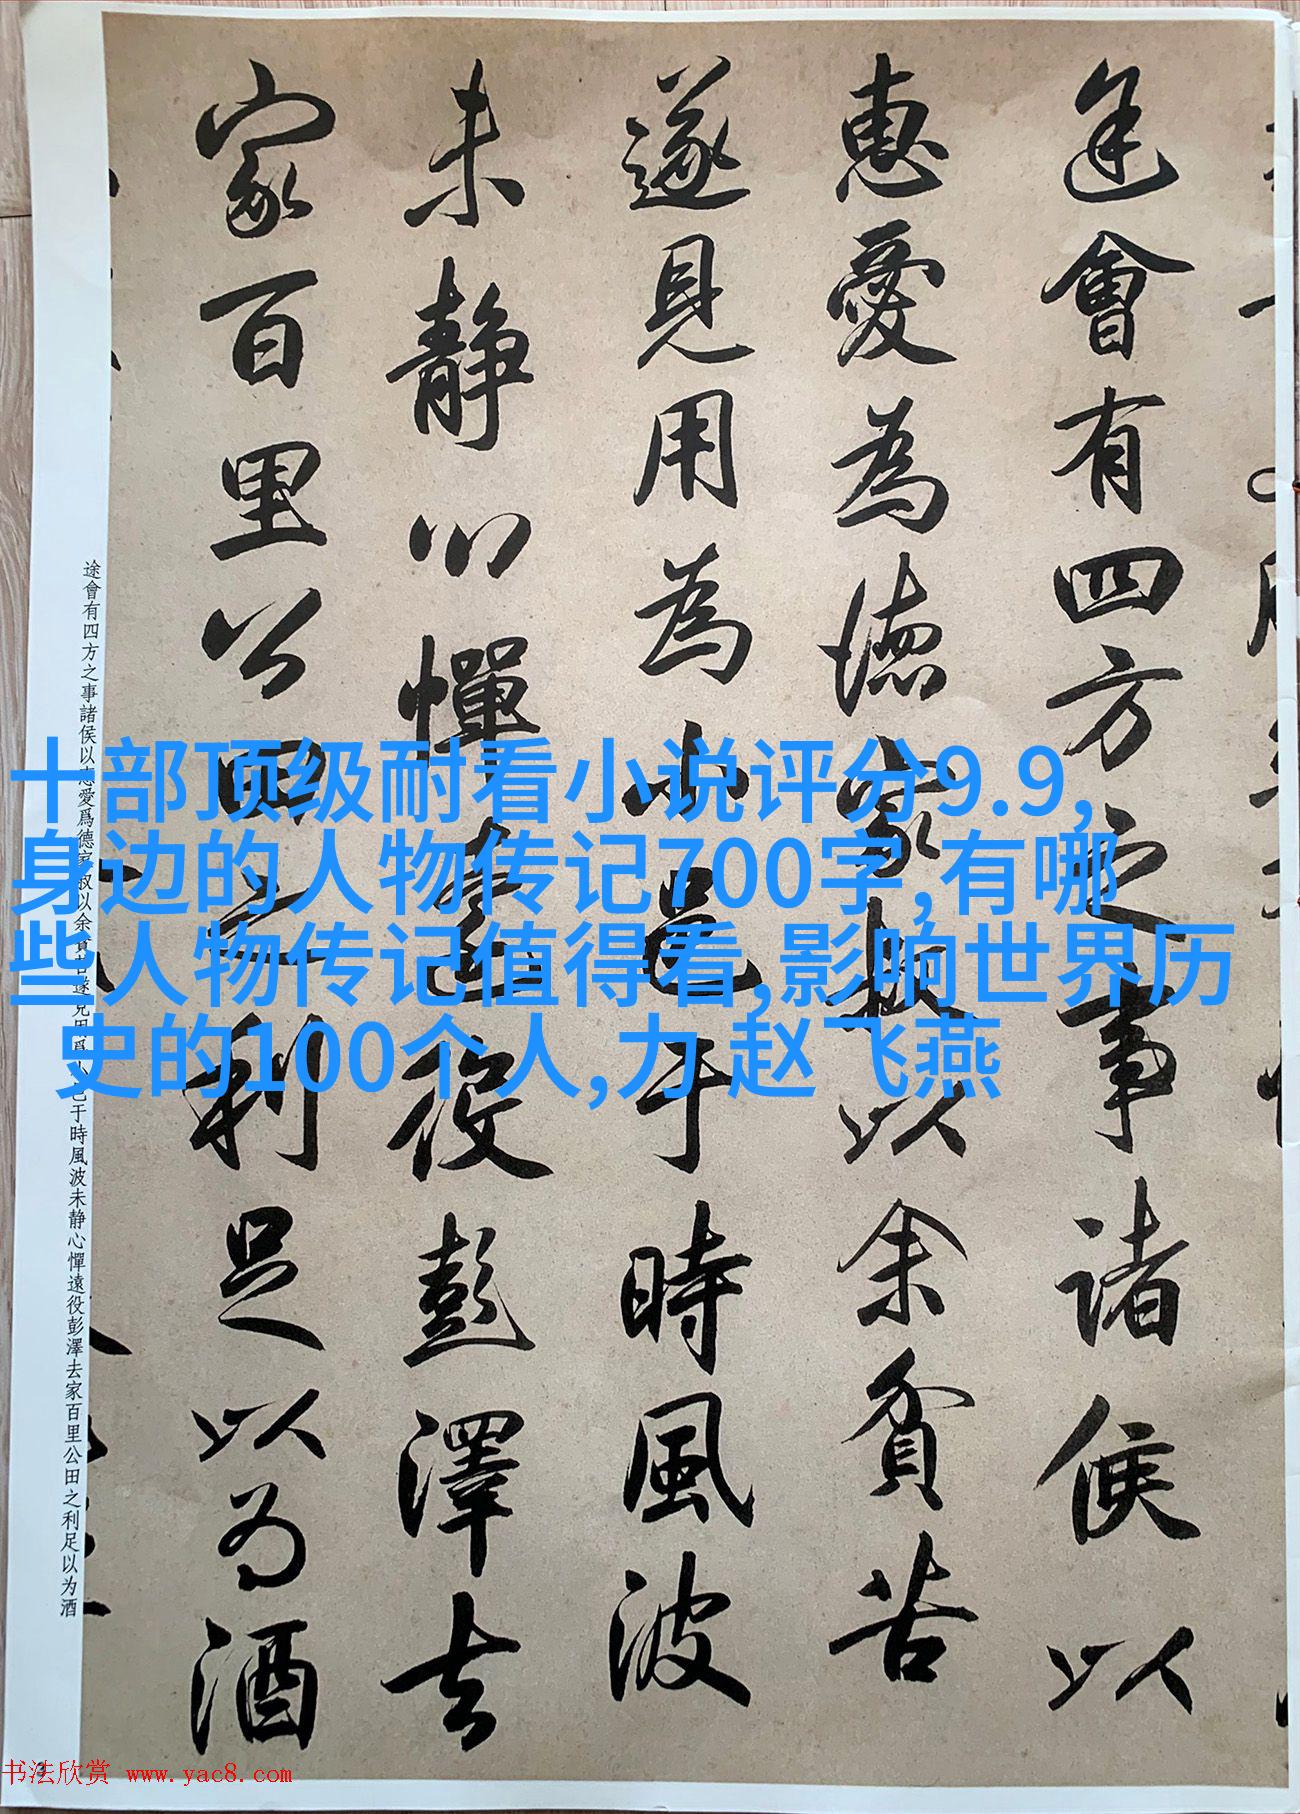 途會有四方之事諸侯以
惠愛為德家叔以余貧苦
遂見用為小邑于時風波
未静心憚遠役彭澤去
家百里公田之利足以為酒
途會有四方之事諸侯以惠愛爲德家叔以余貧苦遂見用爲小邑于時風波未静心憚遠役彭澤去家百里公田之利足以为酒
十部顶级耐看小说评分9.9,
身边的人物传记700字,有哪
些人物传记值得看,影响世界历
史的100个人,力 赵飞燕
书法欣赏 www.yac8.com